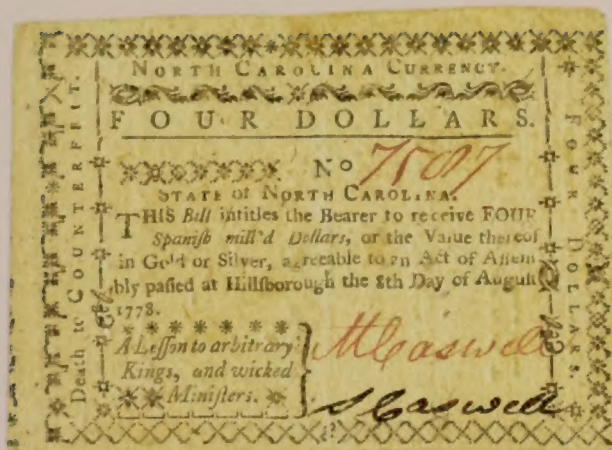 NORTH CAROLINA CURRENCY.
FOUR DOLLARS.
No 7587
STATE of NORTH CAROLINA.
THIS Bill intitles the Bearer to receive FOUR
Spanish mill'd Dollars, or the Value thereof
in Gold or Silver, agreeable to an Act of Assem
bly passed at Hillsborough the 8th Day of August
1778.
A Lesson to arbitrary
Kings, and wicked
Ministers.
Caswell
Caswell
Death to COUNTERFEIT.
FOUR DOLLARS.